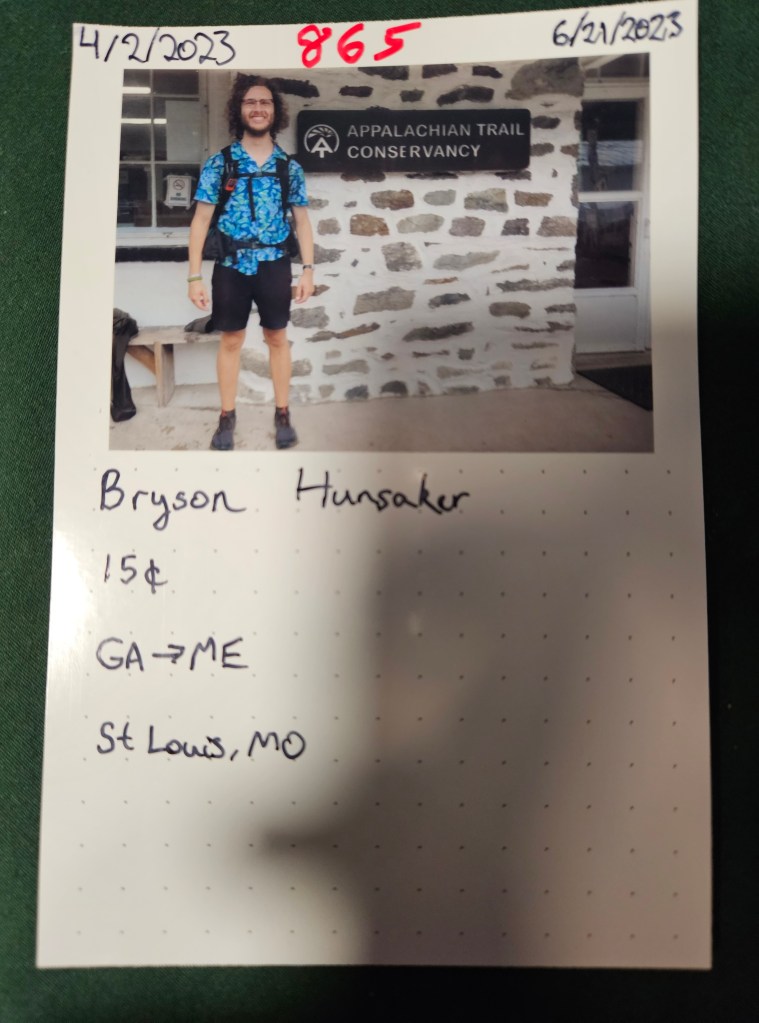 4/2/2023 865 6/21/2023
APPALACHIAN TRAIL
CONSERVANCY
Bryson Hunsaker
15¢
GA→ME
St Louis, MO